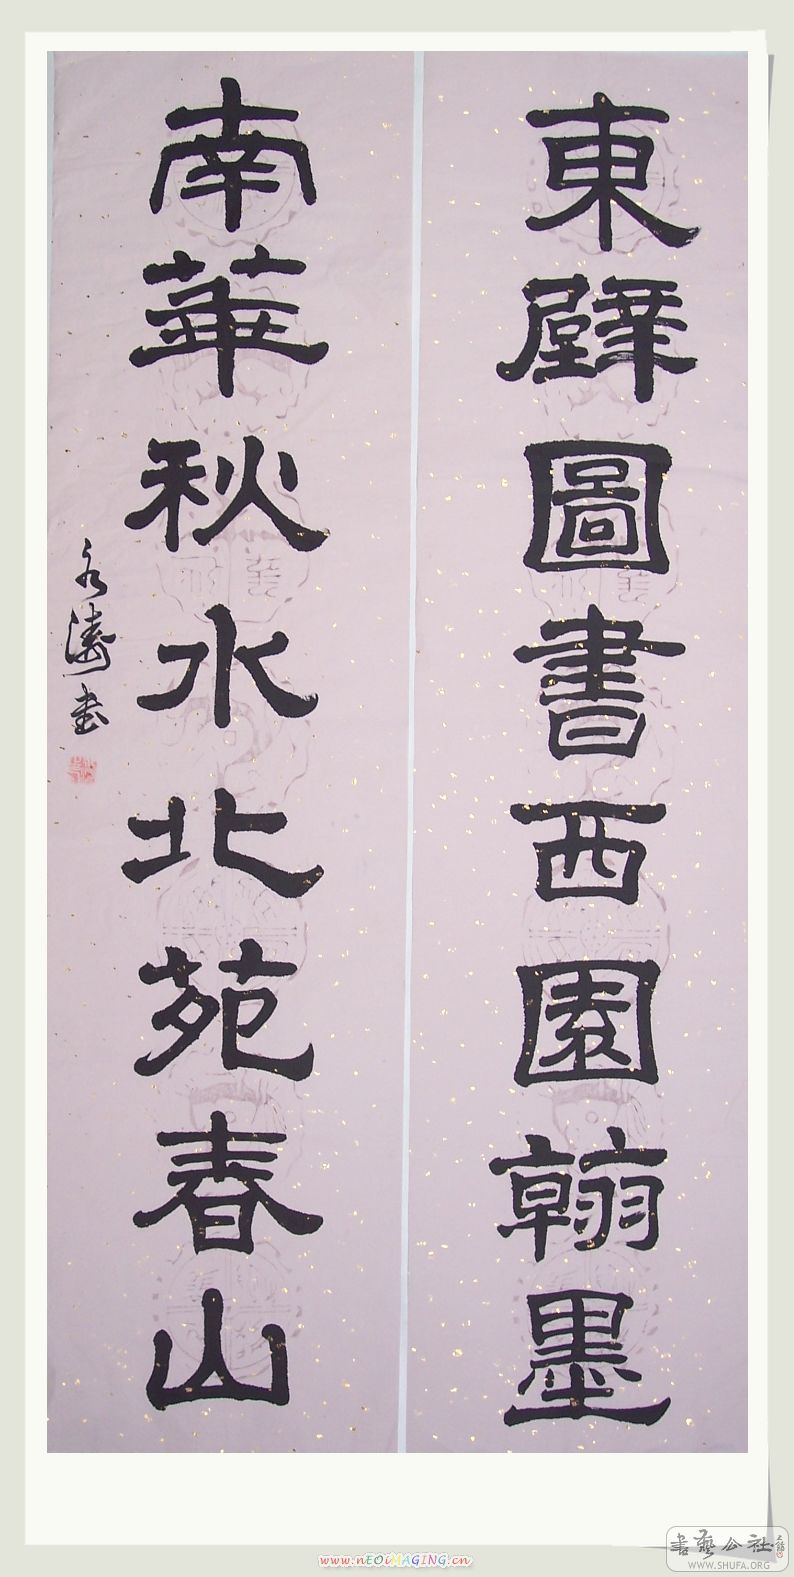 東壁圖書西園翰墨
南華秋水北苑春山
永濤书
www.nEOiMAGING.cn
書藝公社
www.SHUFA.ORG